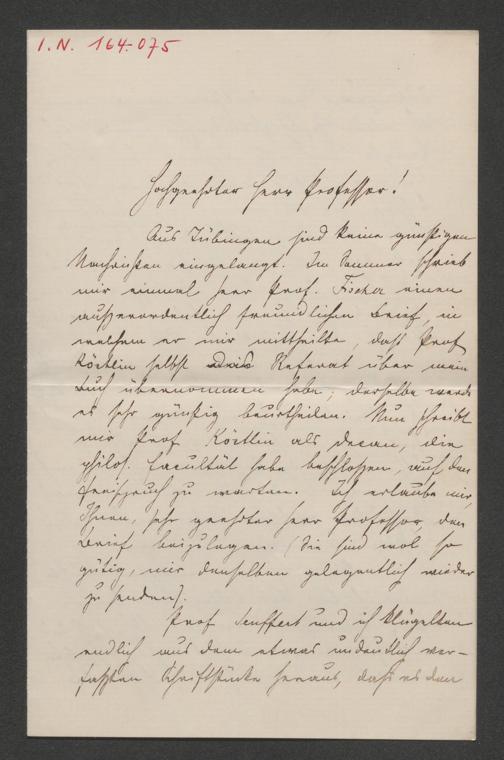 I. N. 164.075
Hochgeehrter Herr Professor!
Aus Tübingen sind keine günstigen
Nachrichten eingelangt. Im Sommer schrieb
mir einmal Herr Prof. Fischer einen
außerordentlich freundlichen Brief, in
welchem er mir mittheilte, daß Prof
Köstlin selbst das Referat über mein
Buch übernommen habe; derselbe werde
es sehr günstig beurtheilen. Nun schreibt
mir Prof. Köstlin als Decan, die
philos. Facultät habe beschlossen, auf den
zu warten. Ich erlaube mir,
Ihnen, sehr geehrter Herr Professor, den
Brief beizulegen. (Sie sind wol so
gütig, mir denselben gelegentlich wieder
zu senden).
Prof Seuffert und ich klügelten
endlich aus dem etwas undeutlich ver-
faßten Schriftstücke heraus, daß es dem